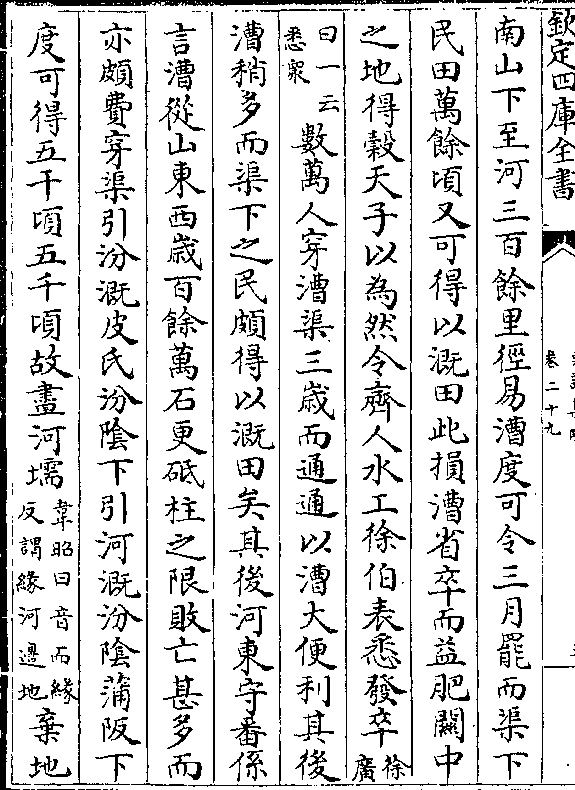 欽定四庫全書
卷二十九
南山下至河三百餘里徑易漕度可令三月罷而渠下
民田萬餘頃又可得以溉田此損漕省卒而益肥關中
之地得穀天子以為然令齊人水工徐伯表悉發卒徐廣
曰一云悉衆數萬人穿漕渠三歲而通通以漕大便利其後
漕稍多而渠下之民頗得以溉田矣其後河東守番係
言漕從山東西歲百餘萬石更砥柱之限敗亡甚多而
亦頗費穿渠引汾溉皮氏汾陰下引河溉汾陰蒲阪下
度可得五千頃五千頃故盡河壖韋昭曰音而緣反謂緣河邊地棄地